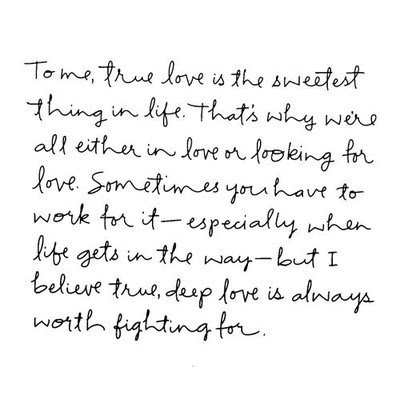 To me, true love is the sweetest
thing in life. That's why we're
all either in love or looking for
love. Sometimes you have to
work for it—especially when
life gets in the way—but I
believe true, deep love is always
worth fighting for.